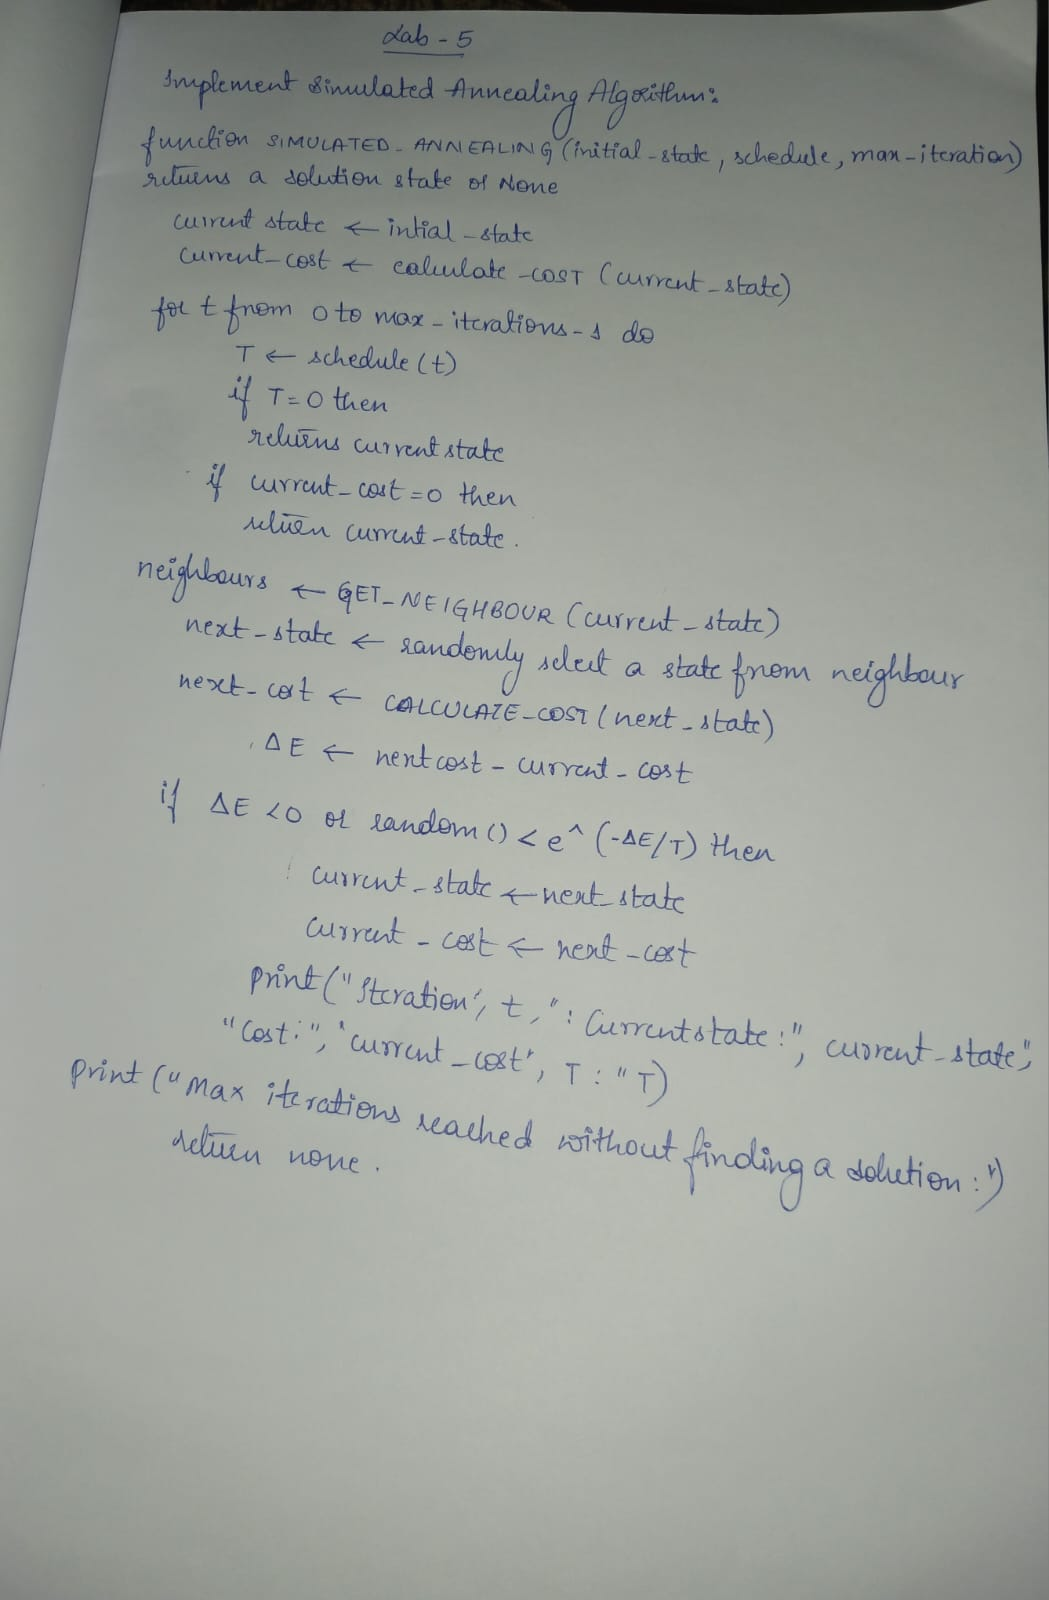 Lab - 5
Implement Simulated Annealing Algorithm:
function SIMULATED_ANNEALING (initial_state, schedule, max-iteration)
returns a solution state or None
current state ← intial_state
current_cost ← calculate_COST (current_state)
for t from 0 to max_iterations-1 do
T ← schedule(t)
if T=0 then
returns current state
if current_cost=0 then
return current-state.
neighbours ← GET_NEIGHBOUR (current_state)
next_state ← randomly select a state from neighbour
next_cost ← CALCULATE_COST (next_state)
ΔE ← next cost - current_cost
if ΔE <0 or random() < e^ (-ΔE/T) then
current_state ← next_state
current_cost ← next_cost
print ("Iteration", t, ": Current state :", current_state",
"Cost:", "current_cost", T : "T)
print ("Max iterations reached without finding a solution :")
return none.